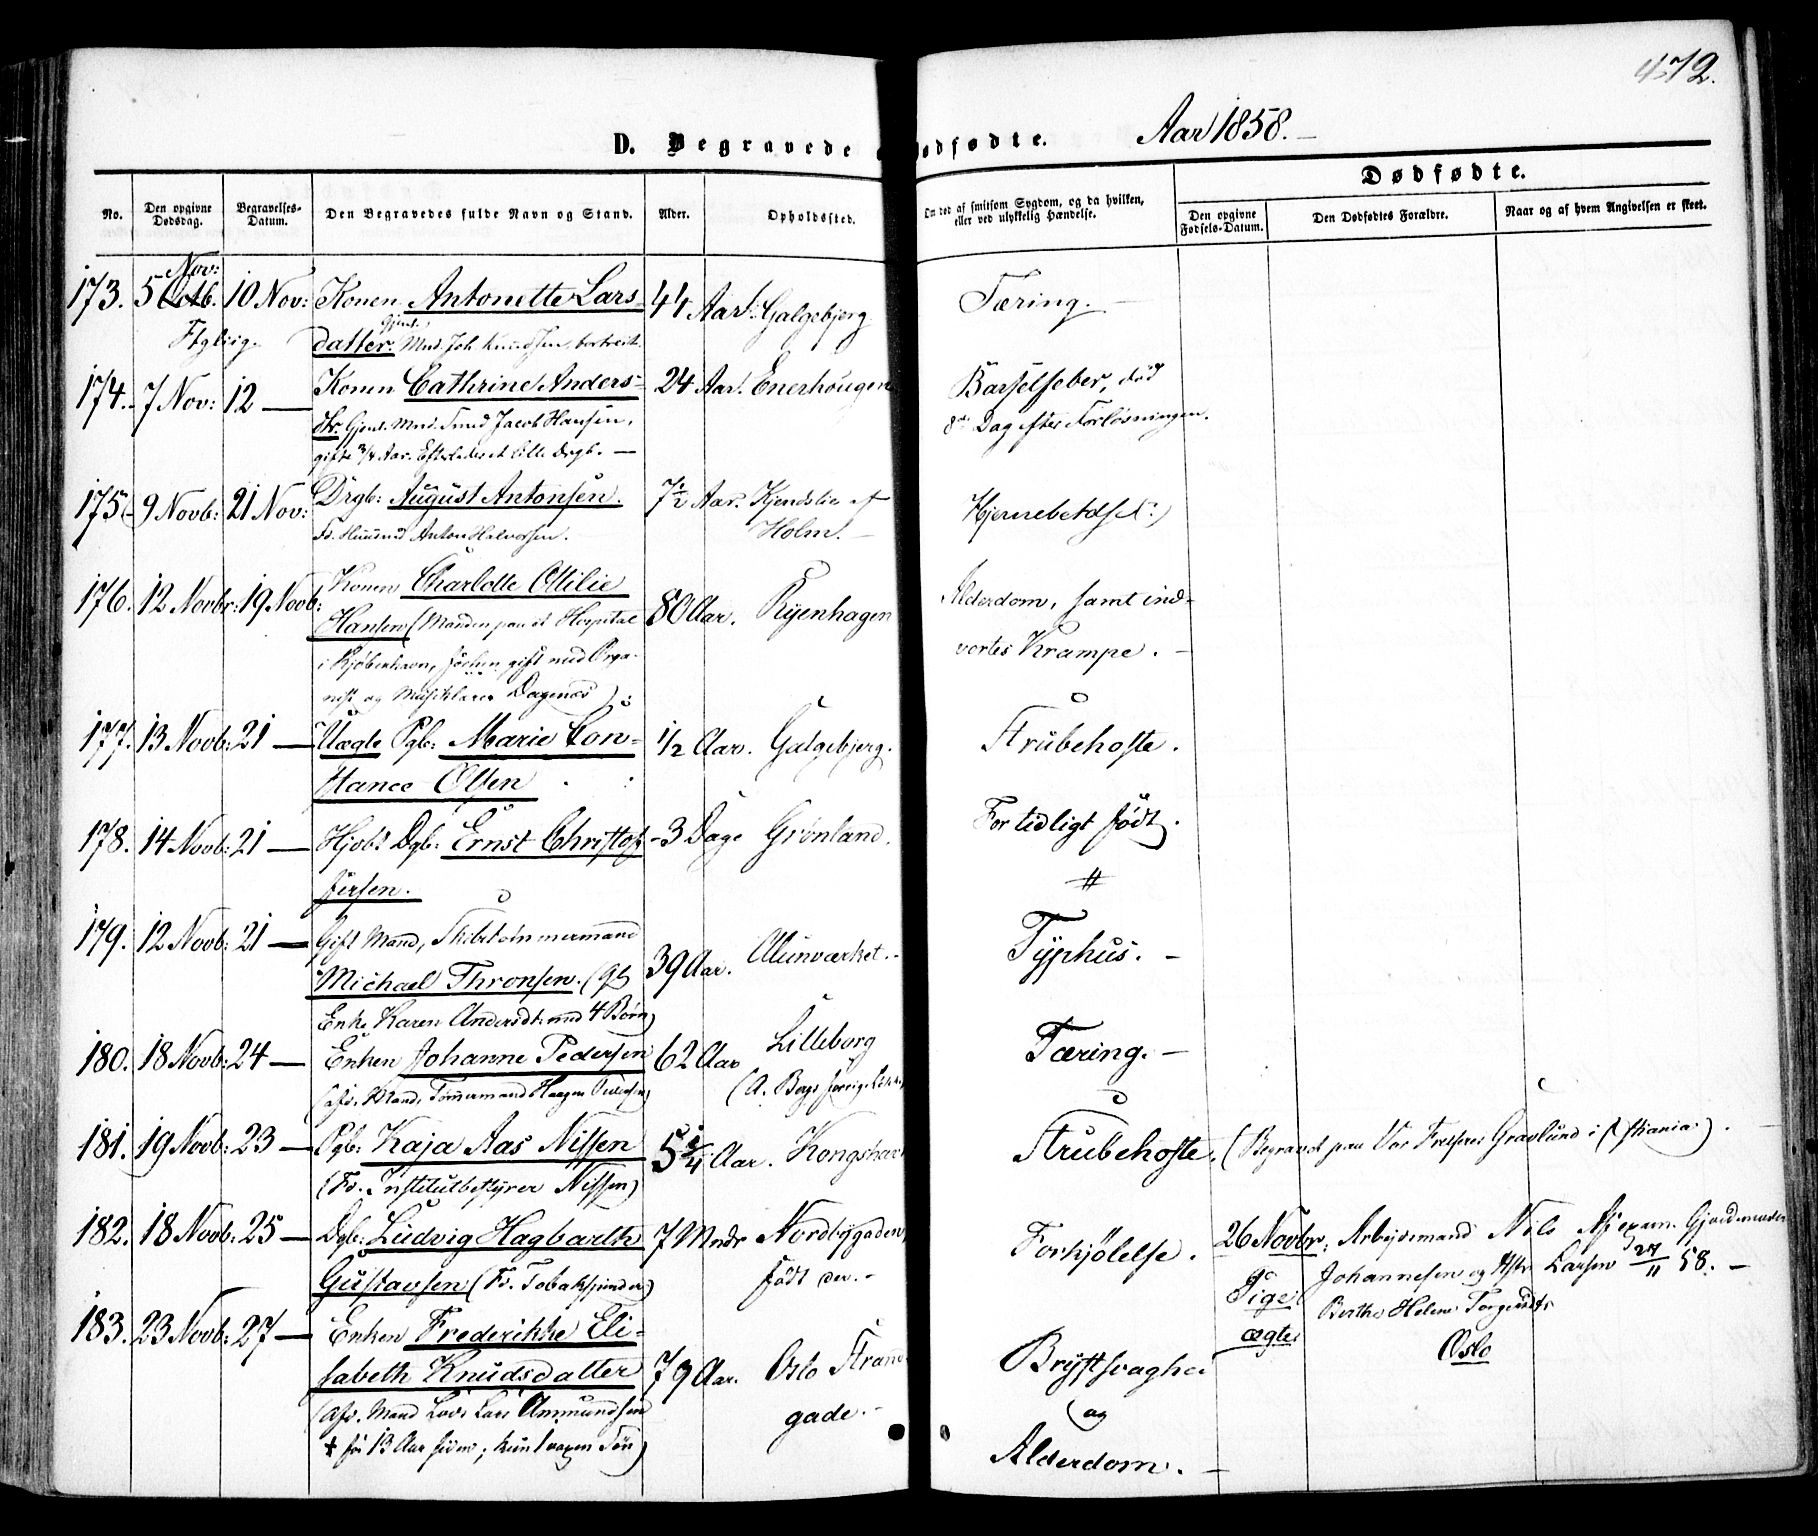 472.
Aar 1858.
D. Begravede o Dødfødte.
Dødfødte.
No.
Den opgivne Dødsdag.
Begravelses-Datum.
Den Begravedes fulde Navn og Stand.
Alder.
Opholdssted.
Om død af smitsom Sygdom, og da hvilken, eller ved ulykkelig Hændelse.
Den opgivne Fødsels-Datum.
Den Dødfødtes Forældre.
Naar og af hvem Angivelsen er skeet.
173. 5 Nov: Octb. 10 Nov: Konen Antonette Lars- 44 Aar. Galgebjerg Tæring.
datter. Gjent. Md. Joh. Knudsen
174. 7 Nov: 12 — Konen Cathrine Anders- 24 Aar. Enerhougen Barselfeber, død
dtr. Gjent. Md. Smed Jacob Hansen, 8de Dag efter Forløsningen.
gifte 3/4 Aar. Efterladt et lille Drgb. —
175. 9 Novb: 21 Nov: Drgb: August Antonsen. 7 1/2 Aar. Kjendslie af Hjernebetdse(:)
Fr. Huusmd Anton Halvorsen. Holm. —
176. 12 Novbr: 19 Novb: Konen Charlotte Ottilie 80 Aar. Ryenhagen Alderdom, samt ind-
Hansen (Manden paa et Hospital vortes Krampe. —
i Kjøbenhavn, før hun gift med Orga-
nist og Musiklærer Dagenæs)
177. 13 Novb: 21 — Uægte Pgb: Marie Con- 1/2 Aar. Galgebjerg. Strubehoste.
stance Olsen
178. 14 Novb: 21 — Hjdbt Dgb: Ernst Christof- 3 Dage Grønland. For tidligt født.
fersen.
179. 12 Novb: 21 — Gift Mand, Skibstømmermand 39 Aar. Alunværket. Typhus. —
Michael Thronsen. (
Enke Karen Andersdt. med 4 Børn)
180. 18 Novb: 24 — Enken Johanne Pedersen 62 Aar Lilleborg Tæring. —
(afd. Mand, Tømmermand Haagen Pedersen) (A. Borgs
181. 19 Novb: 23 — Pgb: Kaja Aas Nissen 5 1/4 Aar. Kongshavn Strubehoste. (Begravet paa Vor Frelsers Gravlund i Xstiania).
(Fr. Institutbestyrer Nissen)
182. 18 Novb: 25 — Dgb: Ludvig Hagbarth 7 Mndr Nordbygaden, Forkjølelse.
Gustavsen (Fr. Tobakspinder) født der. —
26 Novbr: Arbeidsmand Nils
Johannesen og Hstr
Pige Berthe Helene Torgersdtr
ægte Oslo
Gjordemoder
Larsen 27/11 58. —
183. 23 Novb: 27 — Enken Frederikke Eli- 79 Aar. Oslo Strand- Brystsvaghed
sabeth Knudsdatter gade. — og
(Afd. Mand Lods Lars Ammundsen Alderdom. —
† for 13 Aar siden; kun 1 voxen Søn)